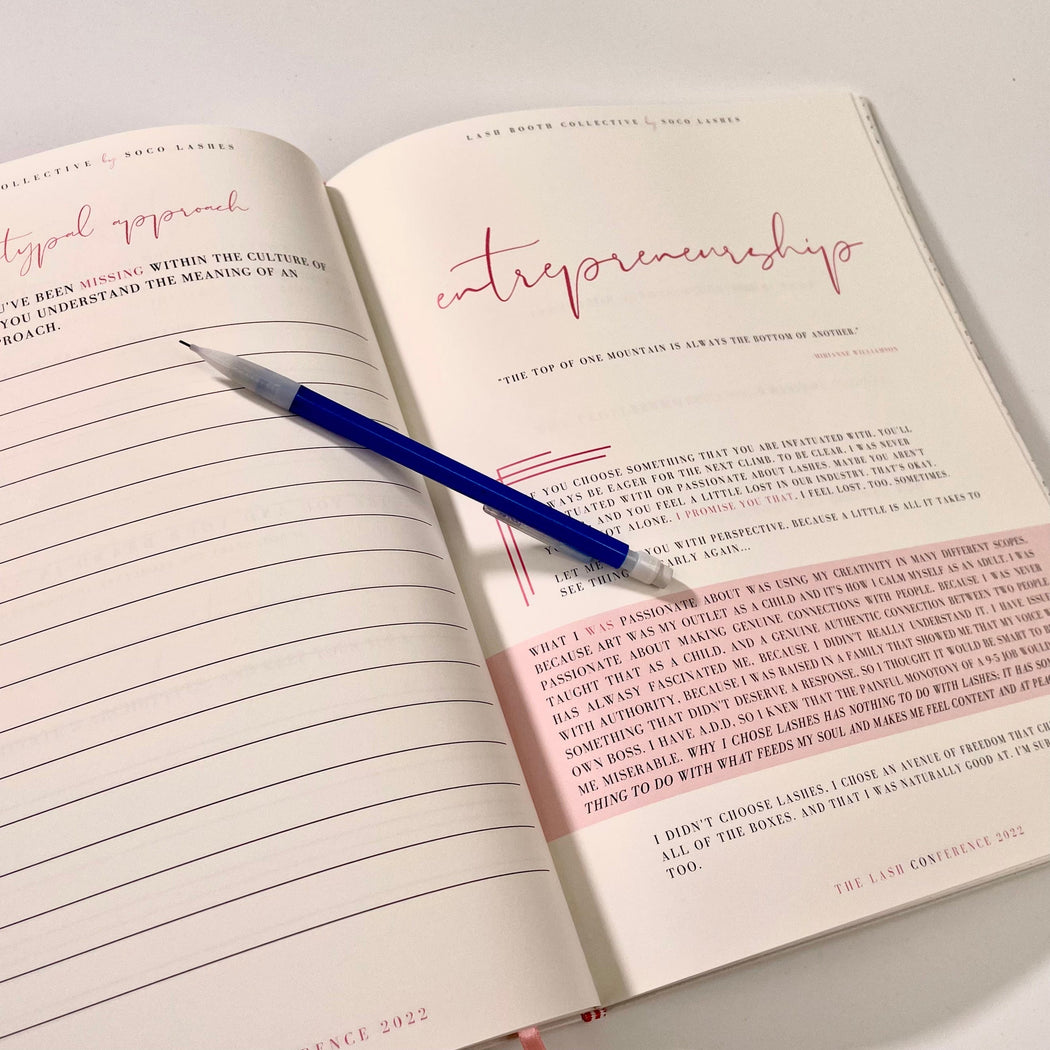 OLLECTIVE by SOCO LASHES
typal approach
U'VE BEEN MISSING WITHIN THE CULTURE OF
YOU UNDERSTAND THE MEANING OF AN
ROACH.
ENCE 2022
LASH BOOTH COLLECTIVE by SOCO LASHES
entrepreneurship
"THE TOP OF ONE MOUNTAIN IS ALWAYS THE BOTTOM OF ANOTHER."
MIRIANNE WILLIAMSON
F YOU CHOOSE SOMETHING THAT YOU ARE INFATUATED WITH, YOU'LL
WAYS BE EAGER FOR THE NEXT CLIMB. TO BE CLEAR, I WAS NEVER
TUATED WITH OR PASSIONATE ABOUT LASHES. MAYBE YOU AREN'T
AND YOU FEEL A LITTLE LOST IN OUR INDUSTRY. THAT'S OKAY.
YO OT ALONE. I PROMISE YOU THAT. I FEEL LOST, TOO. SOMETIMES.
LET ME YOU WITH PERSPECTIVE. BECAUSE A LITTLE IS ALL IT TAKES TO
SEE THING EARLY AGAIN...
WHAT I WAS PASSIONATE ABOUT WAS USING MY CREATIVITY IN MANY DIFFERENT SCOPES.
BECAUSE ART WAS MY OUTLET AS A CHILD AND IT'S HOW I CALM MYSELF AS AN ADULT. I WAS
PASSIONATE ABOUT MAKING GENUINE CONNECTIONS WITH PEOPLE. BECAUSE I WAS NEVER
TAUGHT THAT AS A CHILD. AND A GENUINE AUTHENTIC CONNECTION BETWEEN TWO PEOPLE
HAS ALWASY FASCINATED ME, BECAUSE I DIDN'T REALLY UNDERSTAND IT. I HAVE ISSUE
WITH AUTHORITY, BECAUSE I WAS RAISED IN A FAMILY THAT SHOWED ME THAT MY VOICE W
SOMETHING THAT DIDN'T DESERVE A RESPONSE. SO I THOUGHT IT WOULD BE SMART TO B
OWN BOSS. I HAVE A.D.D, SO I KNEW THAT THE PAINFUL MONOTONY OF A 9-5 JOB WOUL
ME MISERABLE. WHY I CHOSE LASHES HAS NOTHING TO DO WITH LASHES; IT HAS SOM
THING TO DO WITH WHAT FEEDS MY SOUL AND MAKES ME FEEL CONTENT AND AT PEAC
I DIDN'T CHOOSE LASHES. I CHOSE AN AVENUE OF FREEDOM THAT CH
ALL OF THE BOXES. AND THAT I WAS NATURALLY GOOD AT. I'M SUR
TOO.
THE LASH CONFERENCE 2022